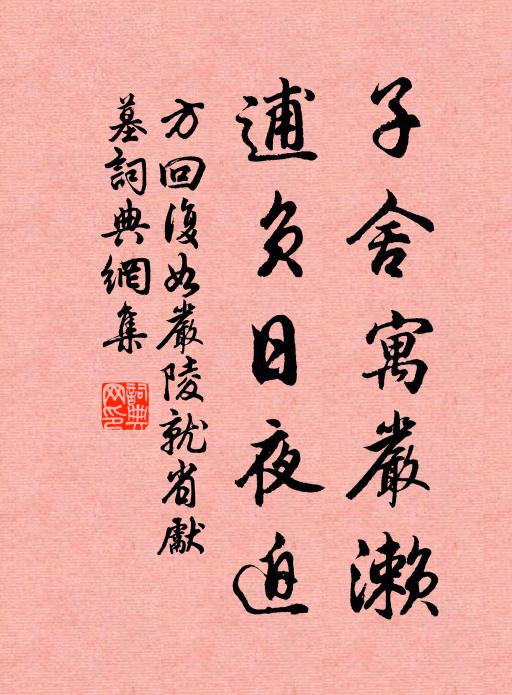 子舍寓嚴瀨
逋負日夜迫
方回復如嚴陵就省獻
墓詞典網集
詞典网印